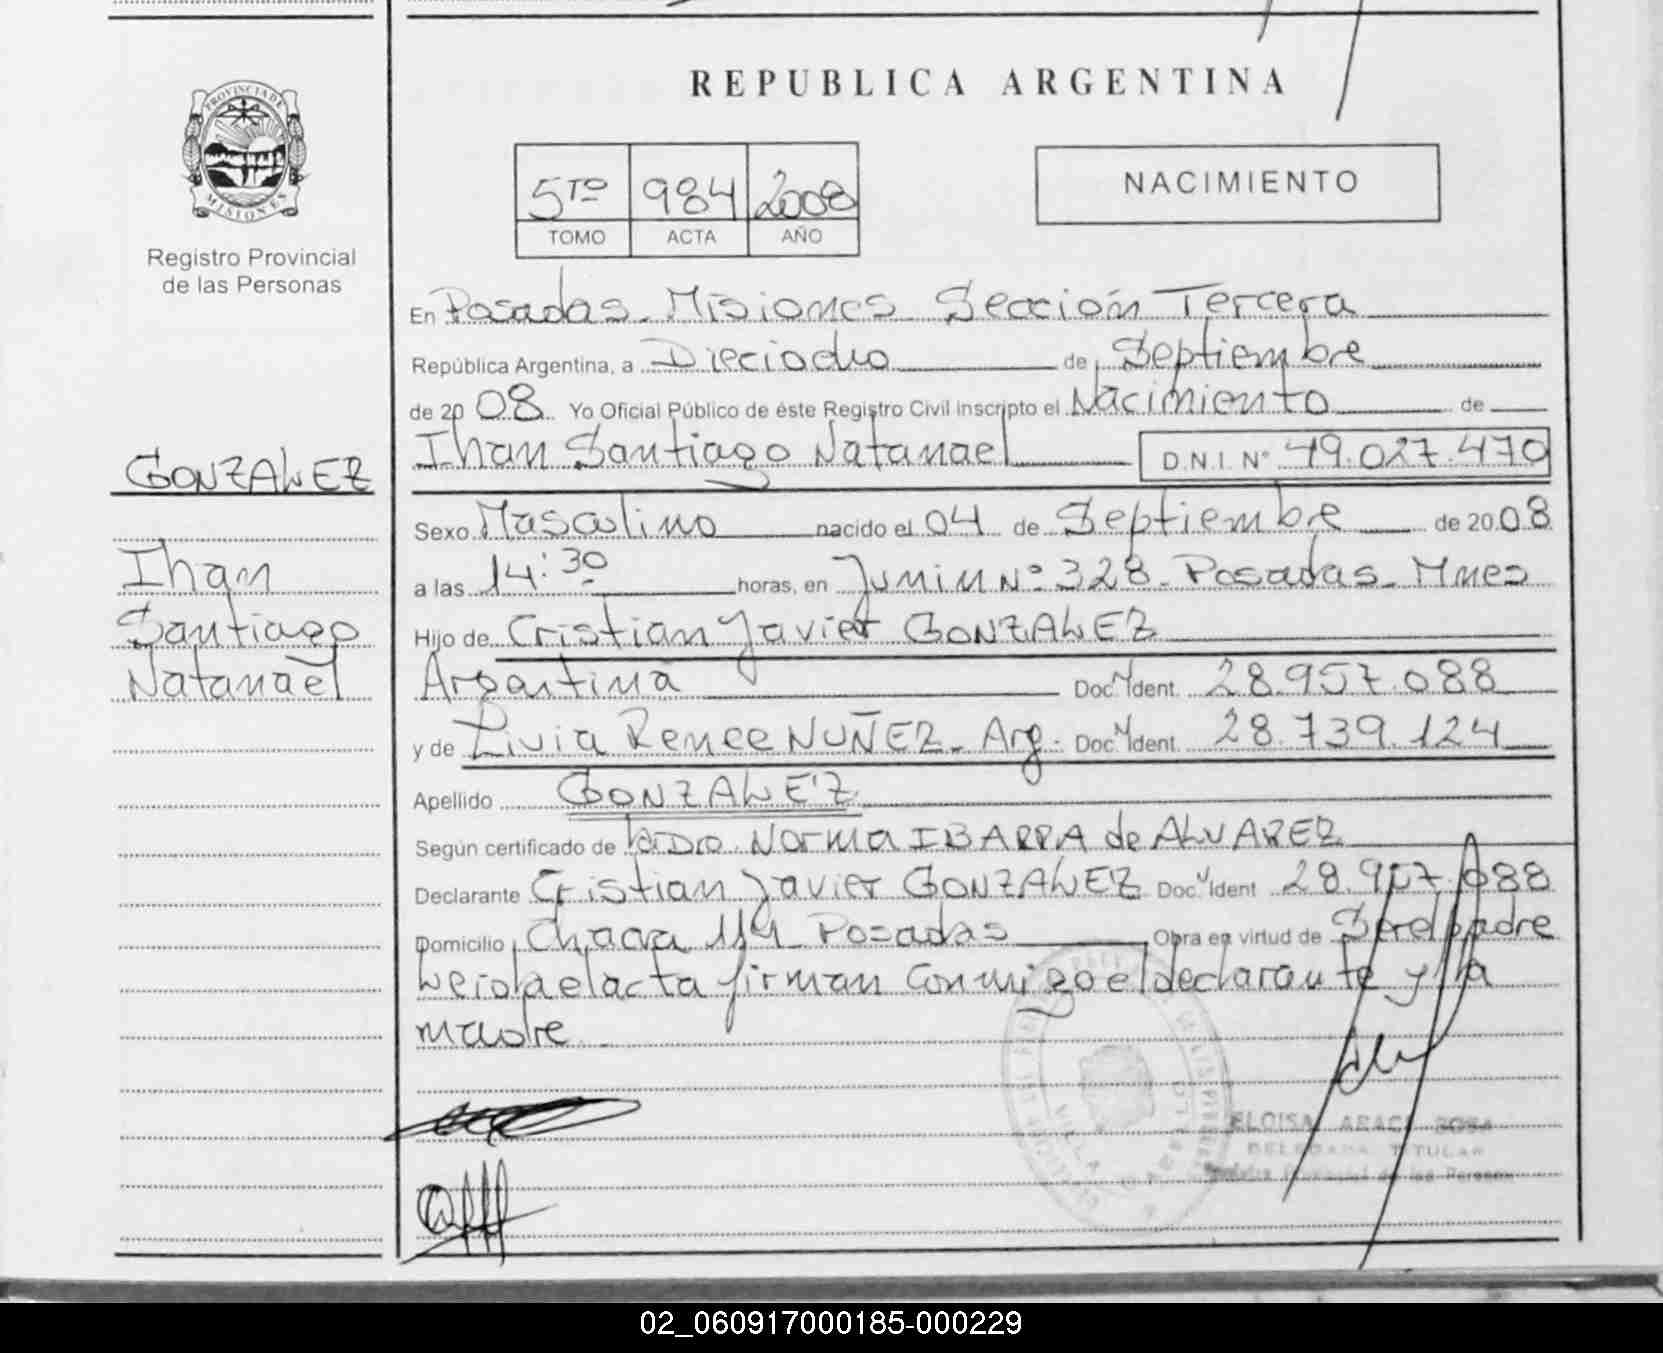 REPUBLICA ARGENTINA
PROVINCIA DE
MISIONES
Registro Provincial
de las Personas
5TO 984 2008
TOMO ACTA AÑO
NACIMIENTO
En Posadas. Misiones Sección Tercera
República Argentina, a Dieciocho de Septiembre
de 2008 Yo Oficial Público de éste Registro Civil inscripto el Nacimiento de
Ihan Santiago Natanael D.N.I. Nº 49.027.470
GONZALEZ
Ihan
Santiago
Natanael
Sexo Masculino nacido el 04 de Septiembre de 2008
a las 14:30 horas, en Junin Nº 328. Posadas. Mnes
Hijo de Cristian Javier GONZALEZ
Argentina Doc. Ident. 28.957.088
y de Livia Renee NUÑEZ. Arg. Doc. Ident. 28.739.124
Apellido GONZALEZ
Según certificado de Norma IBARRA de ALVAREZ
Declarante Cristian Javier GONZALEZ Doc. Ident 28.957.088
Domicilio Chacra 114 Posadas Obra en virtud de Ser el padre
Leida el acta firman conmigo el declarante y la
madre.
DELEGADA TITULAR
02_060917000185-000229